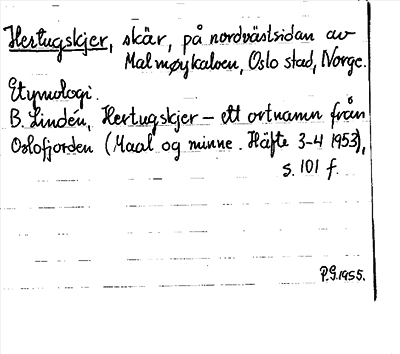 Hertugskjer, skär, på nordvästsidan av
Malmøykalven, Oslo stad, Norge.
Etymologi.
B. Lindén, Hertugskjer – ett ortnamn från
Oslofjorden (Maal og minne. Häfte 3-4 1953),
s. 101 f.
P.G.1955.